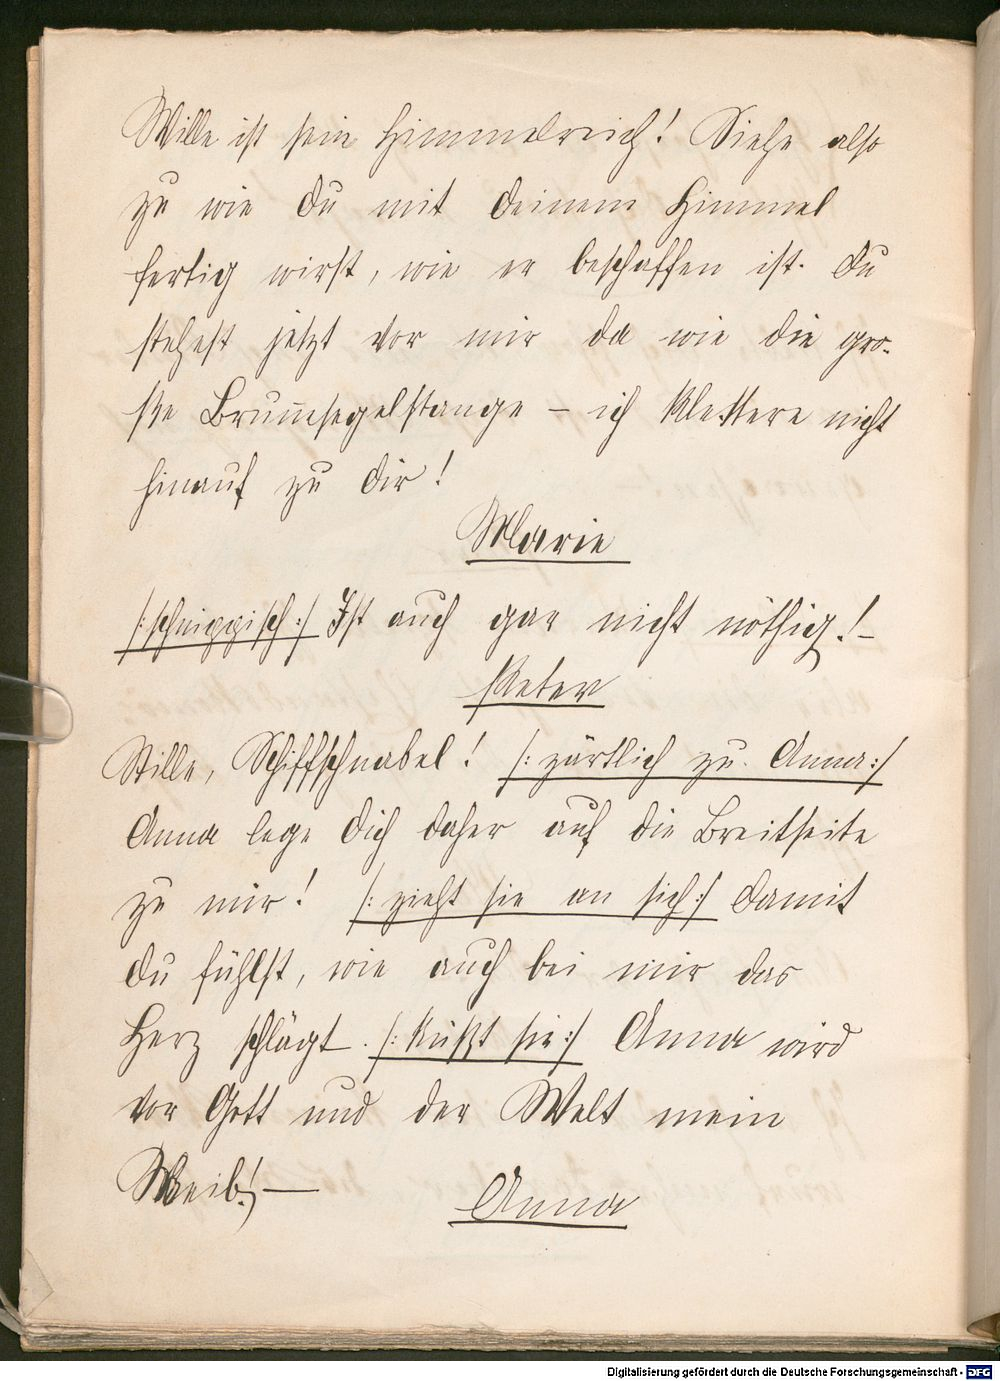 Wille ist sein Himmelreich! Siehe also
zu wie du mit deinem Himmel
fertig wirst, wie er beschaffen ist. Du
stehest jetzt vor mir da wie die gro-
ße Brum̅segelstange – ich klettere nicht
hinauf zu dir!
Marie
/: schnippisch :/ Ist auch gar nicht nöthig! –
Peter
Stille, Schiffschnabel! /: zärtlich zu Anna :/
Anna lege dich daher auf die Breitseite
zu mir! /: zieht sie an sich :/ damit
du fühlst, wie auch bei mir das
Herz schlägt. /: küßt sie :/ Anna wird
vor Gott und der Welt mein
Weib! –
Anna
Digitalisierung gefördert durch die Deutsche Forschungsgemeinschaft - DFG